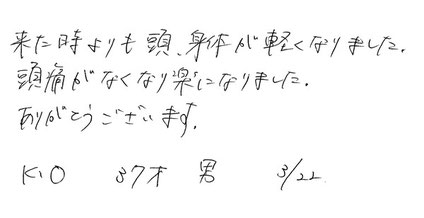 来た時よりも頭、身体が軽くなりました。
頭痛がなくなり楽になりました。
ありがとうございます。
K.O 37才 男 3/22